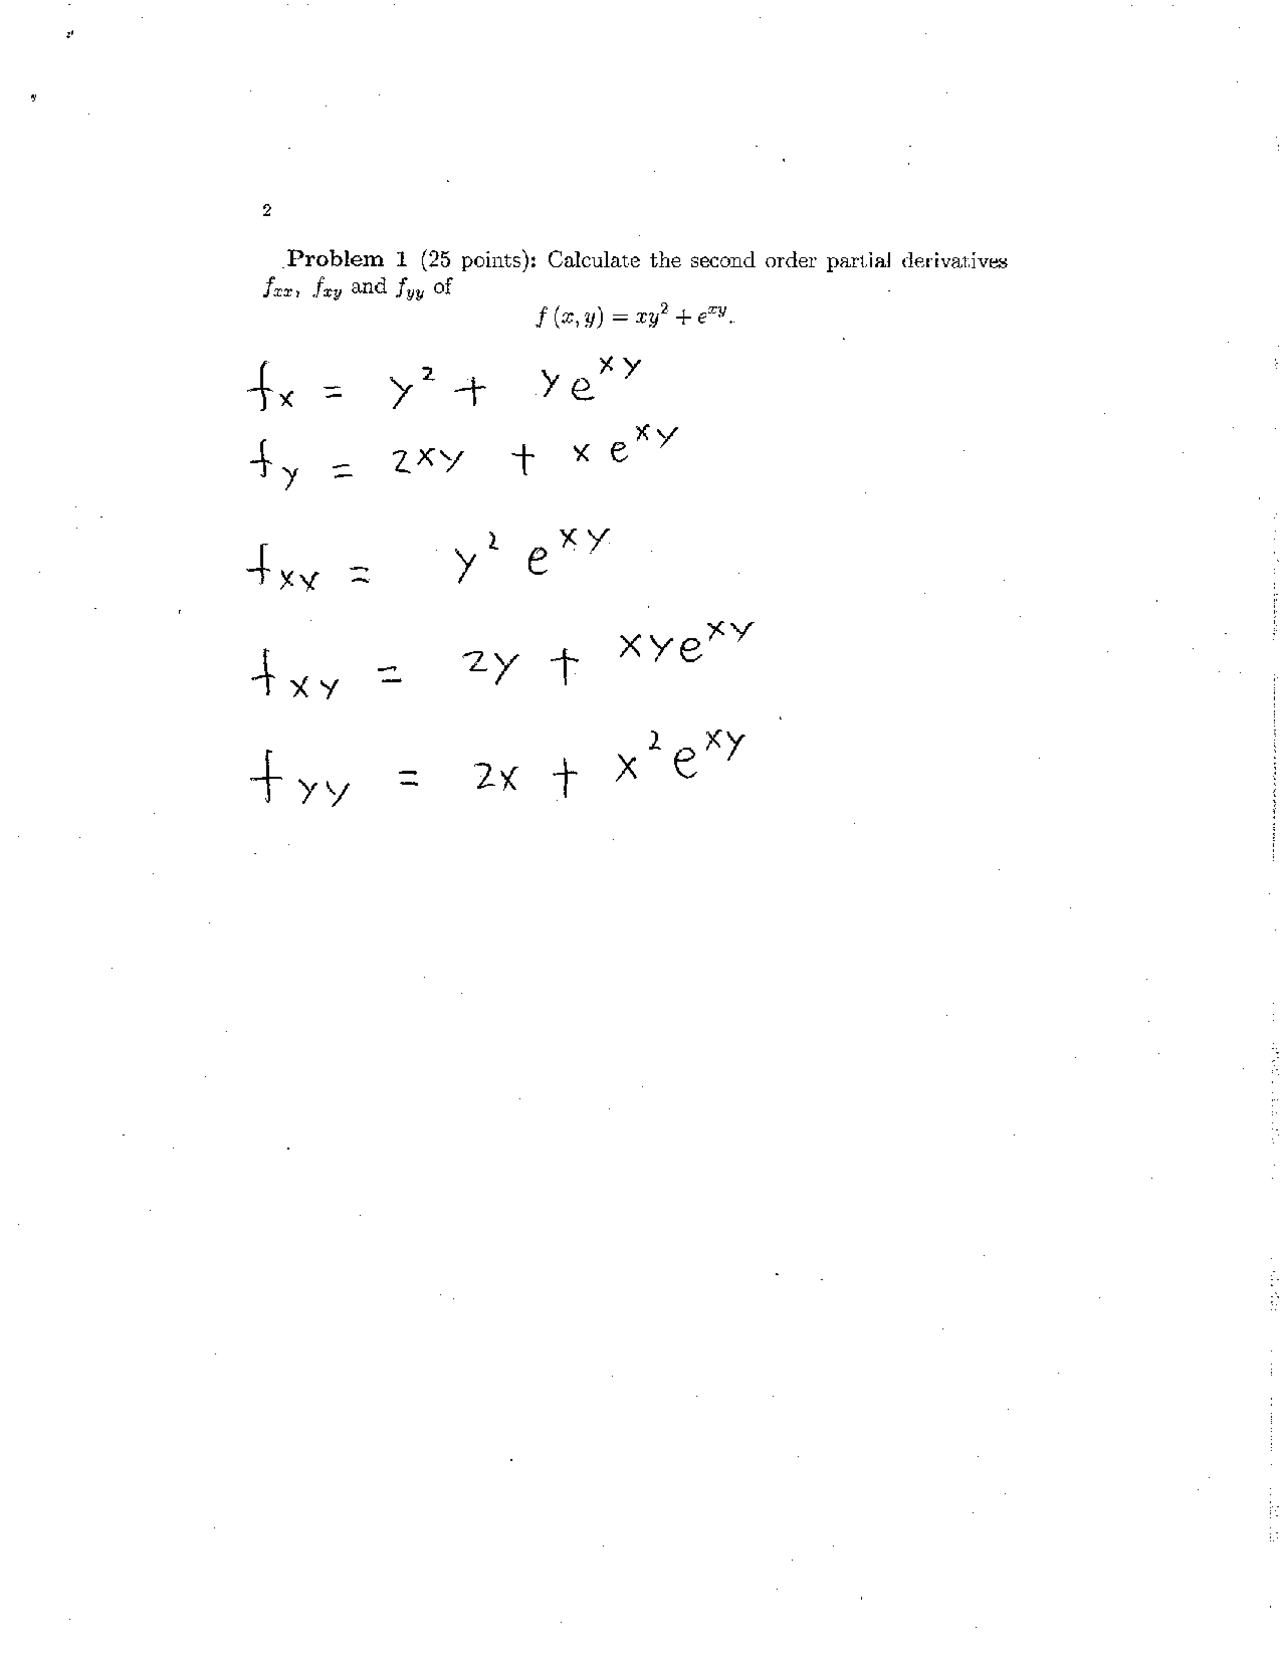 2
Problem 1 (25 points): Calculate the second order partial derivatives
f_{xx}, f_{xy} and f_{yy} of
f (x, y) = xy² + e^{xy}.
f_x = y² + y e^{xy}
f_y = 2xy + x e^{xy}
f_{xx} = y² e^{xy}
f_{xy} = 2y + xye^{xy}
f_{yy} = 2x + x² e^{xy}